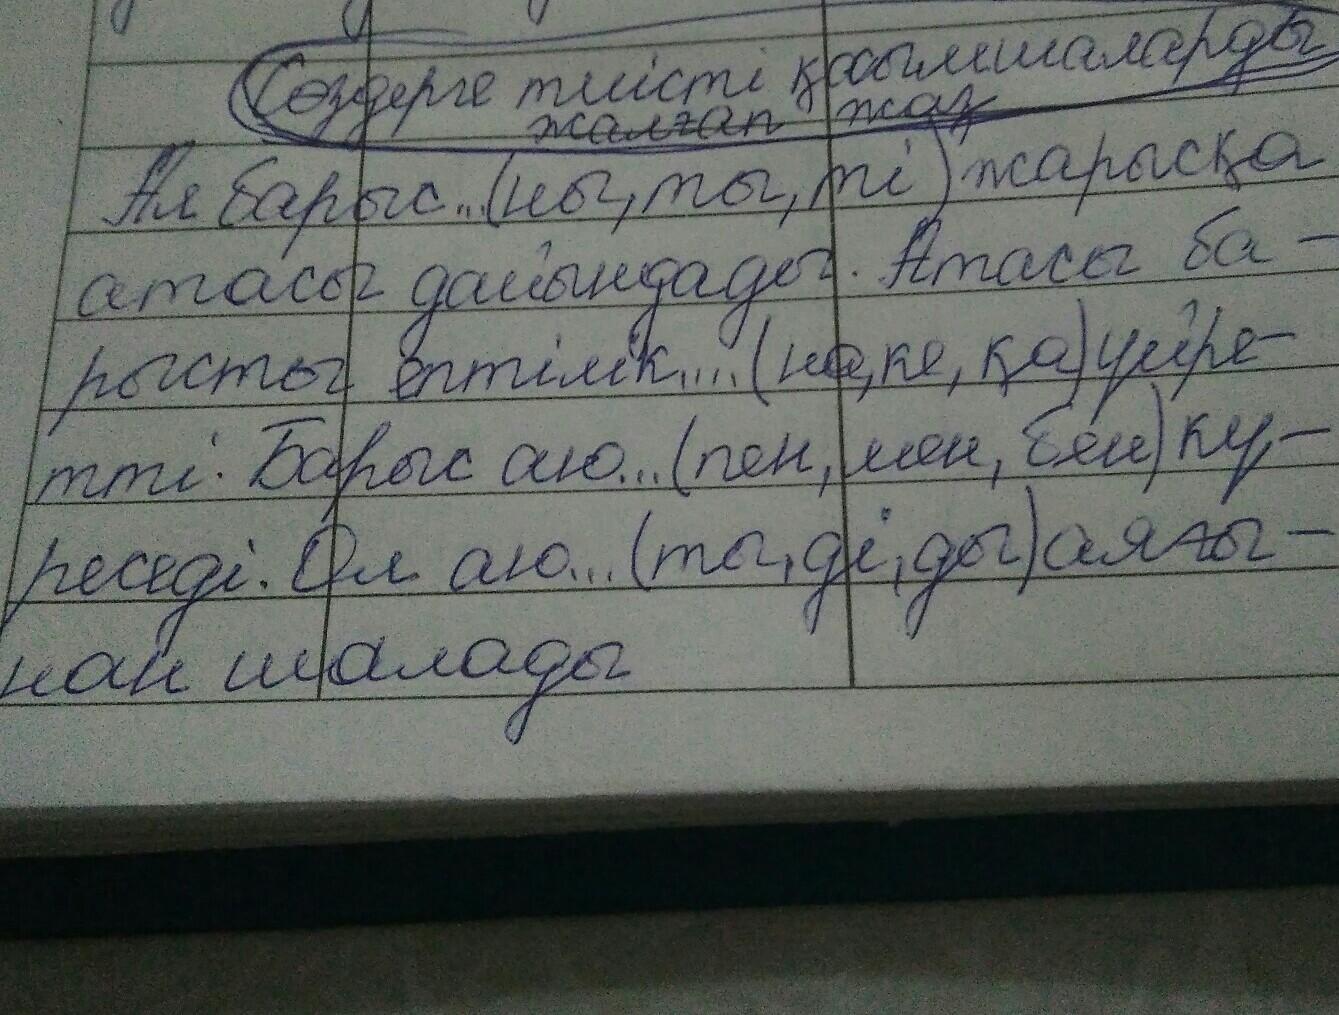 Сөздерге тиісті қосымшаларды
жалған жаз
Ал барыс...(ны, ты, ті) жарысқа
атасы дайындады. Атасы ба-
рысты ептілік....(на, ке, қа) үйре-
тті. Барыс аю...(пен, мен, бен) кү-
реседі. Ол аю...(ты, ді, ды) аяғы-
нан шалады